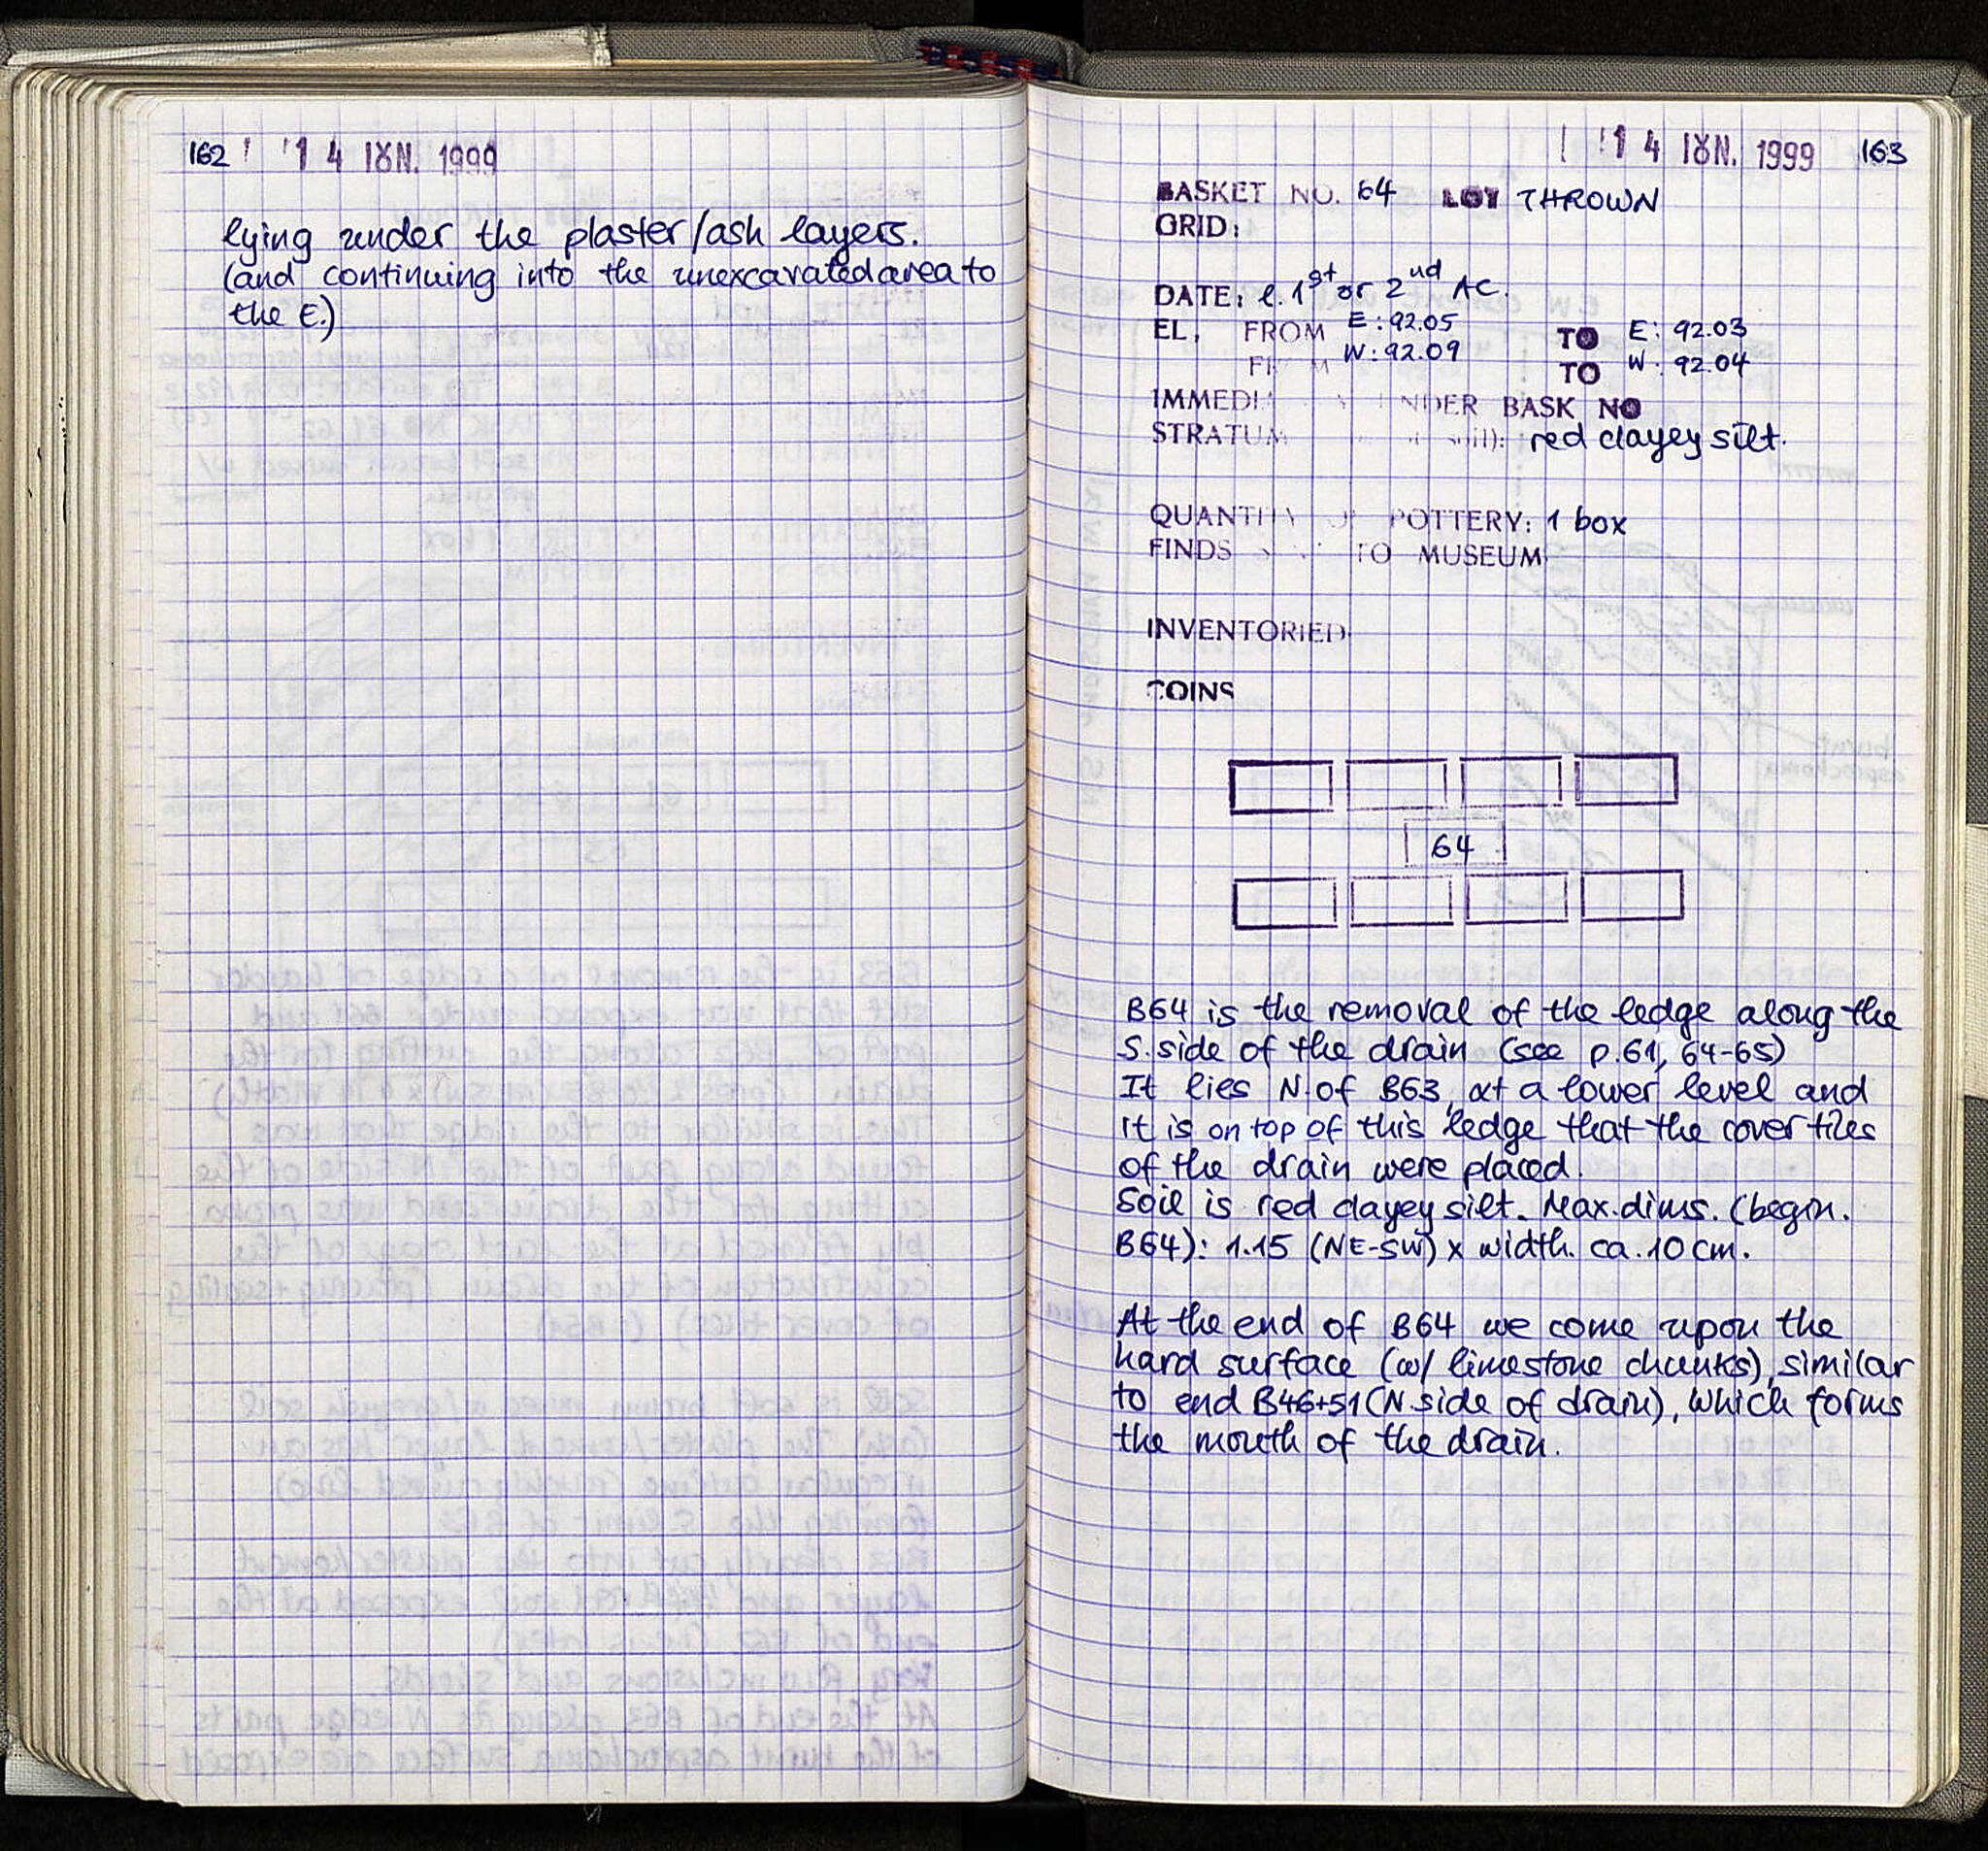 162 14 ΙΟΥΝ. 1999
lying under the plaster/ash layers.
(and continuing into the unexcavated area to
the E.)
14 ΙΟΥΝ. 1999 163
BASKET NO. 64 LOT THROWN
GRID:
DATE: l. 1st or 2nd AC.
EL, FROM E: 92.05 TO E: 92.03
W: 92.09 TO W: 92.04
UNDER BASK NO
STRATUM soil): red clayey silt.
QUANTITY OF POTTERY: 1 box
FINDS TO MUSEUM
INVENTORIED
COINS
64
B64 is the removal of the ledge along the
S. side of the drain (see p.61, 64-65)
It lies N. of B63, at a lower level and
it is on top of this ledge that the cover tiles
of the drain were placed.
Soil is red clayey silt. Max. dims. (begin.
B64): 1.15 (NE-SW) x width. ca. 10 cm.
At the end of B64 we come upon the
hard surface (w/ limestone chunks), similar
to end B46+51 (N. side of drain), which forms
the mouth of the drain.